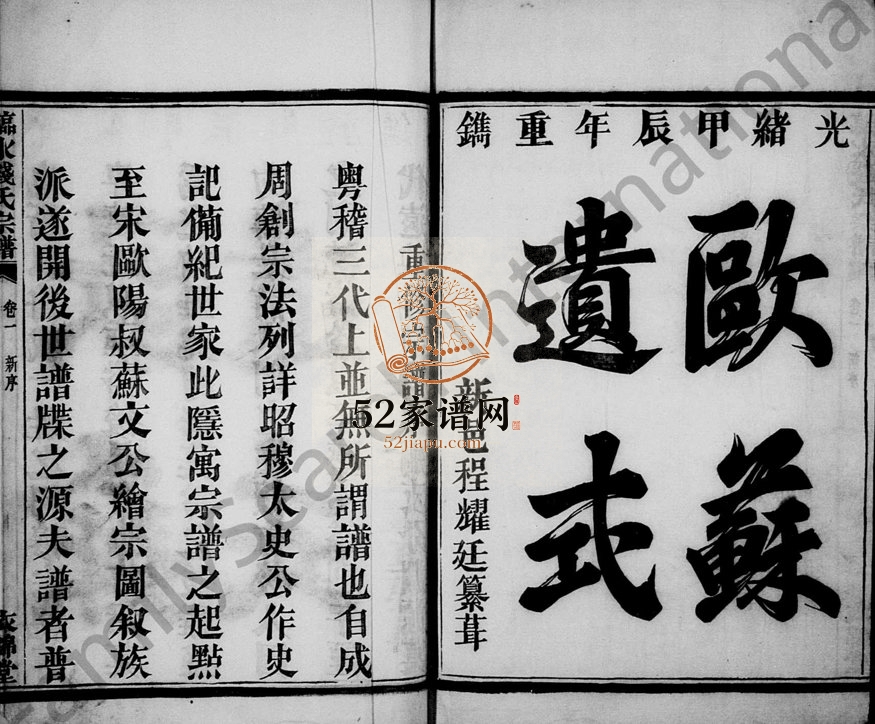 光緒甲辰年重鐫
歐蘇
遺式
新邑程耀廷纂葺
重修宗譜
粵稽三代上並無所謂譜也自成
周創宗法列詳昭穆太史公作史
記備紀世家此隱寓宗譜之起點
至宋歐陽叔蘇文公繪宗圖叙族
派遂開後世譜牒之源夫譜者普
臨水錢氏宗譜
卷一
新序
衣錦堂
52家谱网
52jiapu.com
Family
International